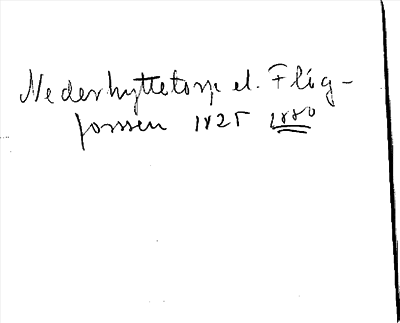 Nederhyttetorp el. Flig-
forssen 1825 1880